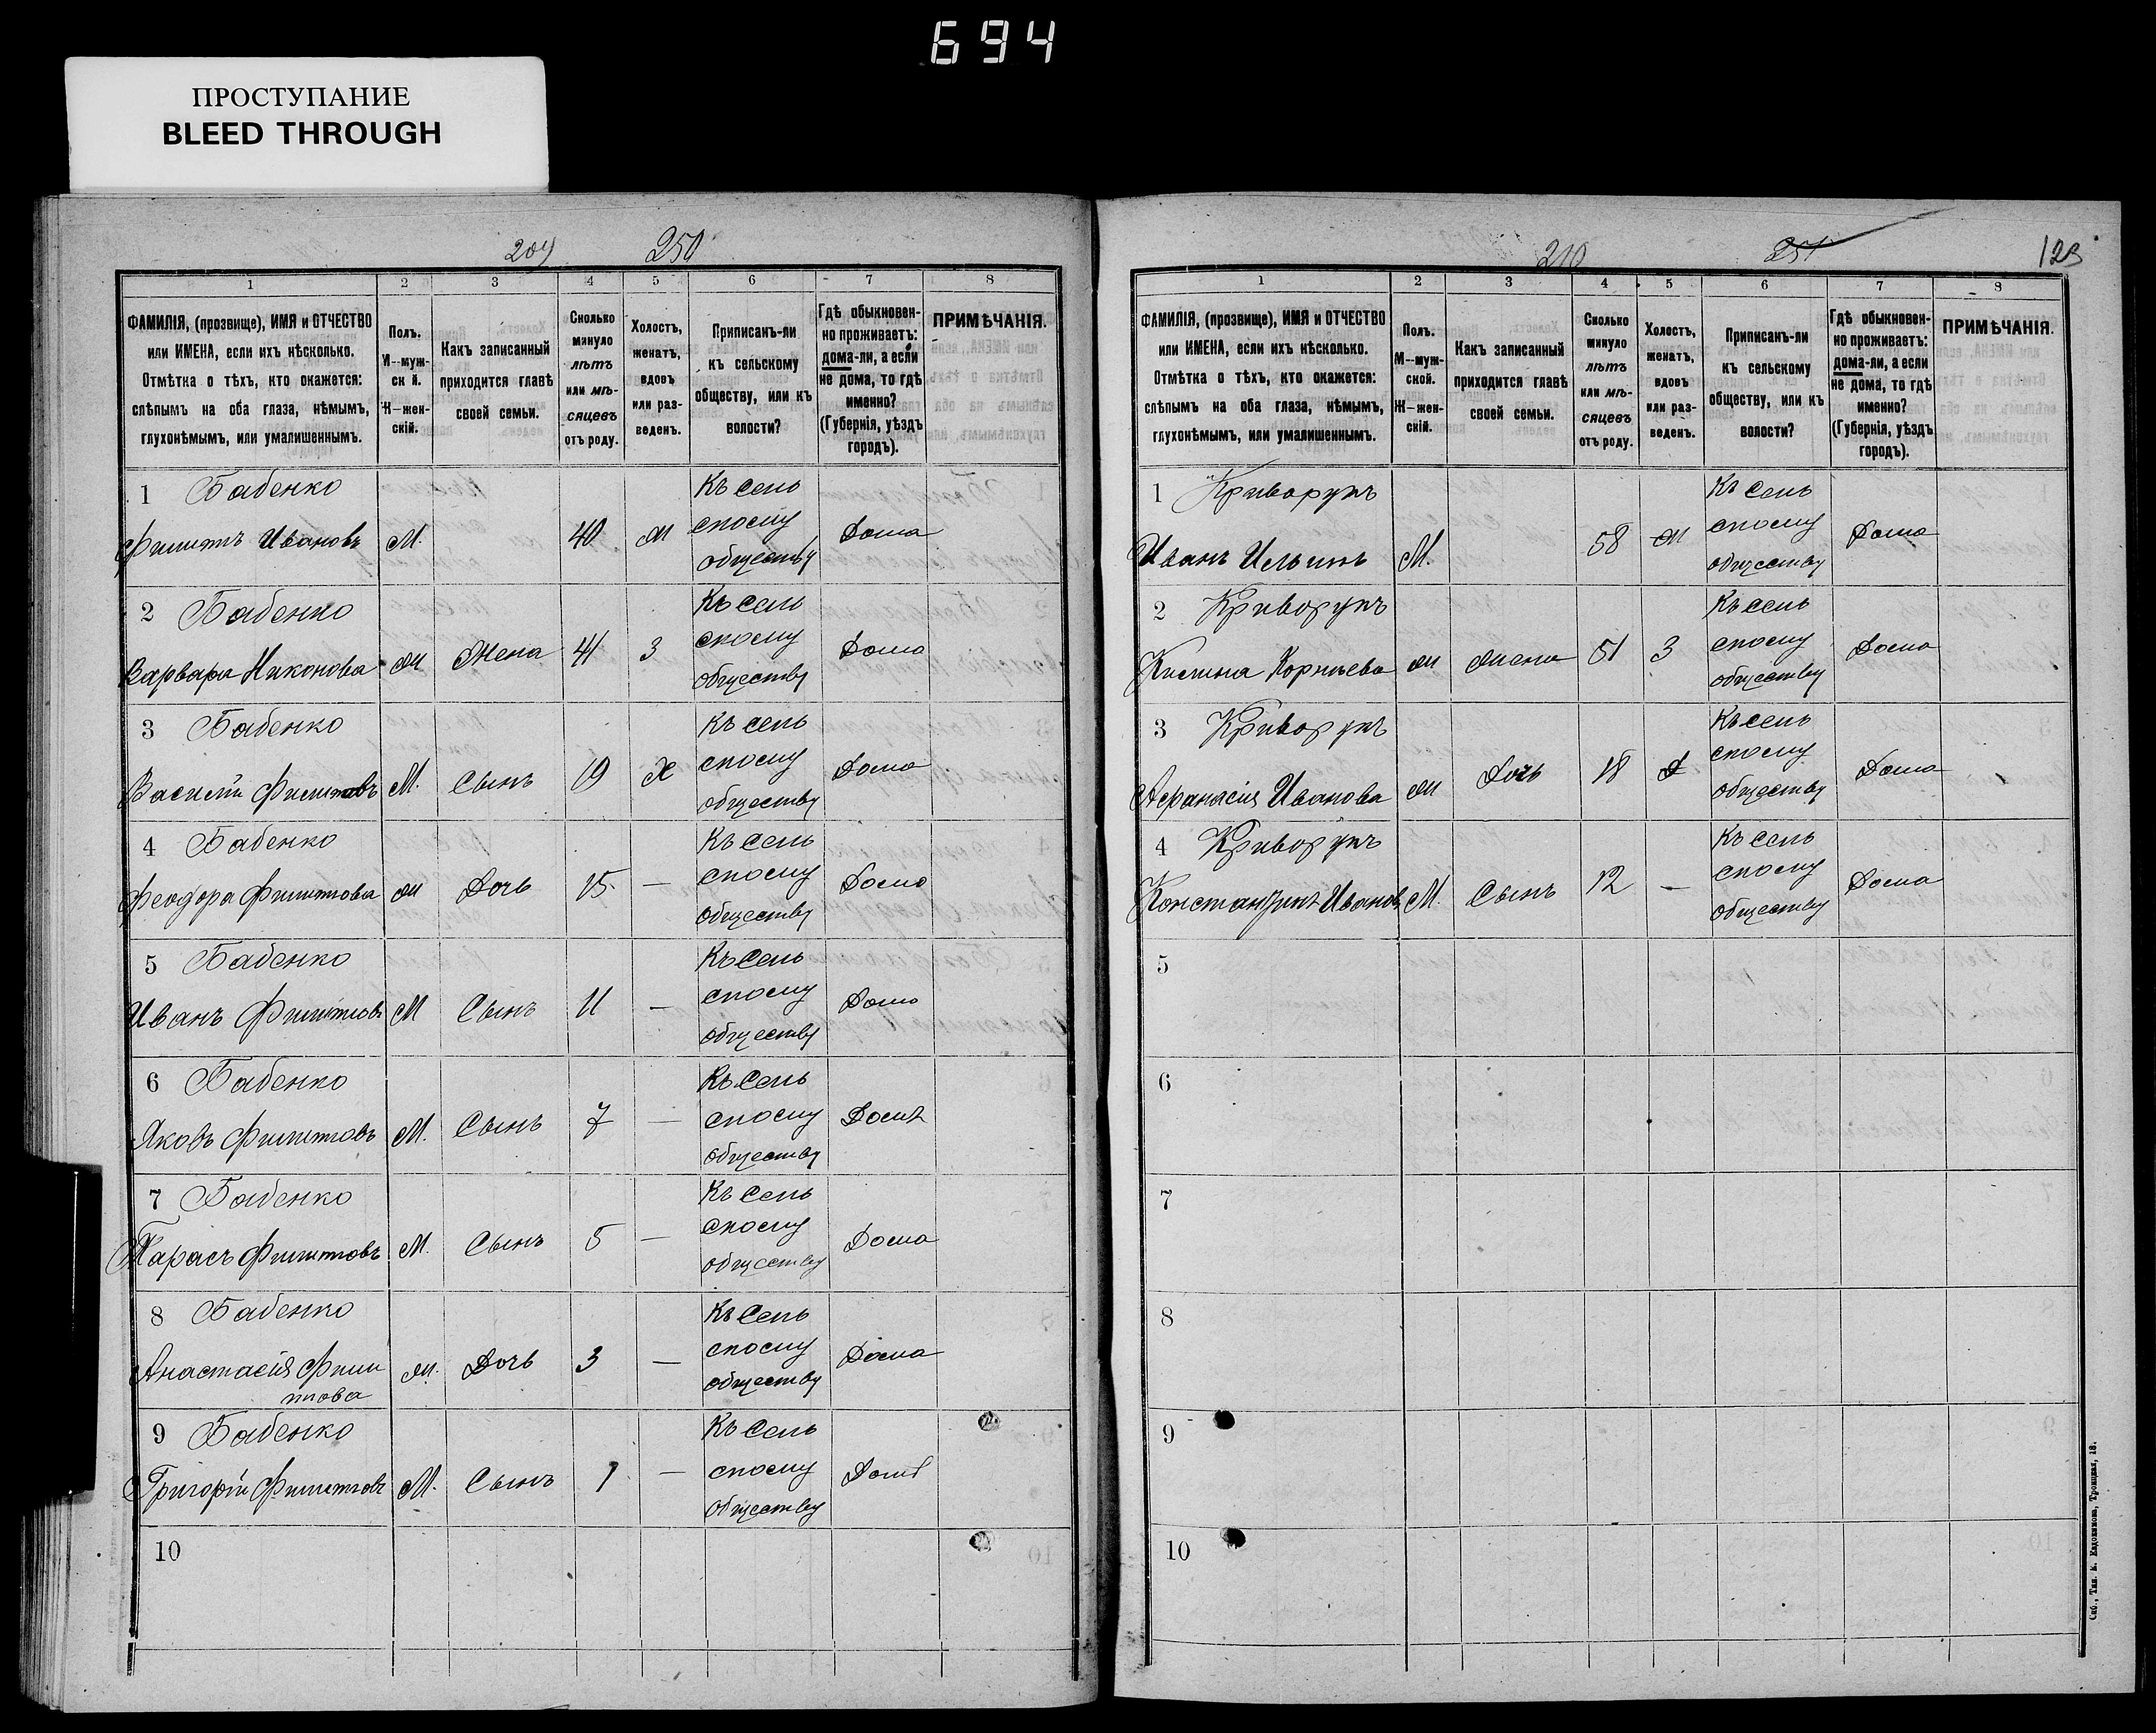 694
ПРОСТУПАНИЕ
BLEED THROUGH
209 250
1 2 3 4 5 6 7 8
ФАМИЛІЯ, (прозвище), ИМЯ и ОТЧЕСТВО или ИМЕНА, если ихъ нѣсколько. Отмѣтка о тѣхъ, кто окажется: слѣпымъ на оба глаза, нѣмымъ, глухонѣмымъ, или умалишеннымъ.
Полъ. М--мужской. Ж--женскій.
Какъ записанный приходится главѣ своей семьи.
Сколько минуло лѣтъ или мѣсяцевъ отъ роду.
Холостъ, женатъ, вдовъ или разведенъ.
Приписанъ-ли къ сельскому обществу, или къ волости?
Гдѣ обыкновенно проживаетъ: дома-ли, а если не дома, то гдѣ именно? (Губернія, уѣздъ городъ).
ПРИМѢЧАНІЯ.
1 Бабенко
Филиппъ Ивановъ М. 40 Ж Къ сельскому обществу Дома
2 Бабенко
Варвара Никонова Ж Жена 41 З Къ сельскому обществу Дома
3 Бабенко
Василій Филипповъ М. Сынъ 19 Х Къ сельскому обществу Дома
4 Бабенко
Феодора Филиппова Ж Дочь 15 — Къ сельскому обществу Дома
5 Бабенко
Иванъ Филипповъ М Сынъ 11 — Къ сельскому обществу Дома
6 Бабенко
Яковъ Филипповъ М. Сынъ 7 — Къ сельскому обществу Дома
7 Бабенко
Тарасъ Филипповъ М. Сынъ 5 — Къ сельскому обществу Дома
8 Бабенко
Анастасія Филиппова Ж. Дочь 3 — Къ сельскому обществу Дома
9 Бабенко
Григорій Филипповъ М. Сынъ 1 — Къ сельскому обществу Дома
10
210 251 123
1 2 3 4 5 6 7 8
ФАМИЛІЯ, (прозвище), ИМЯ и ОТЧЕСТВО или ИМЕНА, если ихъ нѣсколько. Отмѣтка о тѣхъ, кто окажется: слѣпымъ на оба глаза, нѣмымъ, глухонѣмымъ, или умалишеннымъ.
Полъ. М--мужской. Ж--женскій.
Какъ записанный приходится главѣ своей семьи.
Сколько минуло лѣтъ или мѣсяцевъ отъ роду.
Холостъ, женатъ, вдовъ или разведенъ.
Приписанъ-ли къ сельскому обществу, или къ волости?
Гдѣ обыкновенно проживаетъ: дома-ли, а если не дома, то гдѣ именно? (Губернія, уѣздъ городъ).
ПРИМѢЧАНІЯ.
1 Криворукъ
Иванъ Ильинъ М. 58 Ж Къ сельскому обществу Дома
2 Криворукъ
Корнѣева Ж Жена 51 З Къ сельскому обществу Дома
3 Криворукъ
Афанасія Иванова Ж Дочь 18 Д Къ сельскому обществу Дома
4 Криворукъ
Константинъ Ивановъ М. Сынъ 12 — Къ сельскому обществу Дома
5
6
7
8
9
10
Спб., Тип. М. Евдокимова, Троицкая, 18.